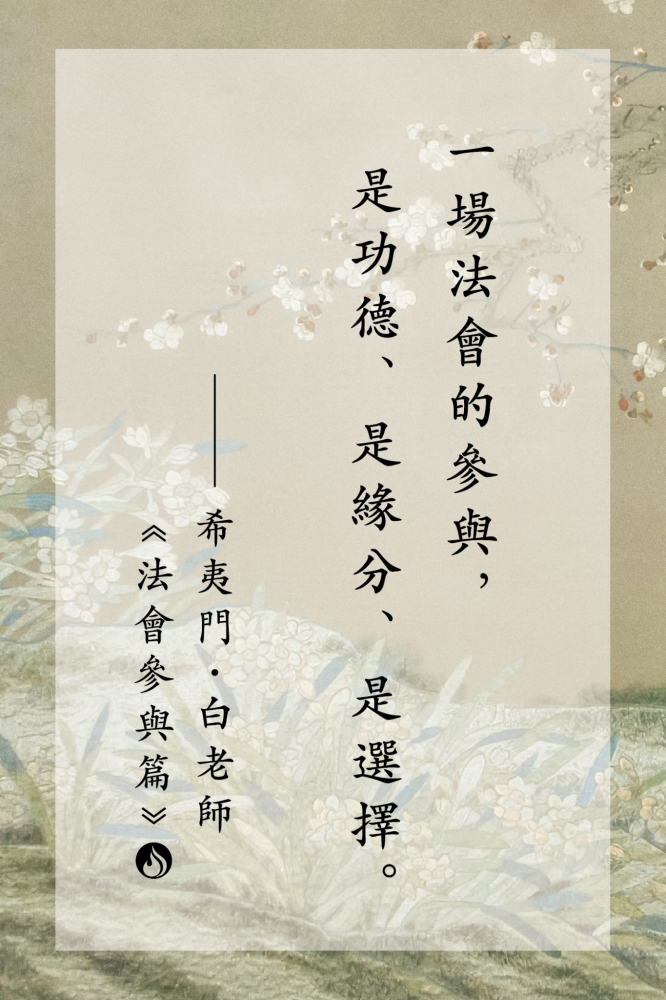 一場法會的參與，
是功德、是緣分、是選擇。
——希夷門·白老師
《法會參與篇》